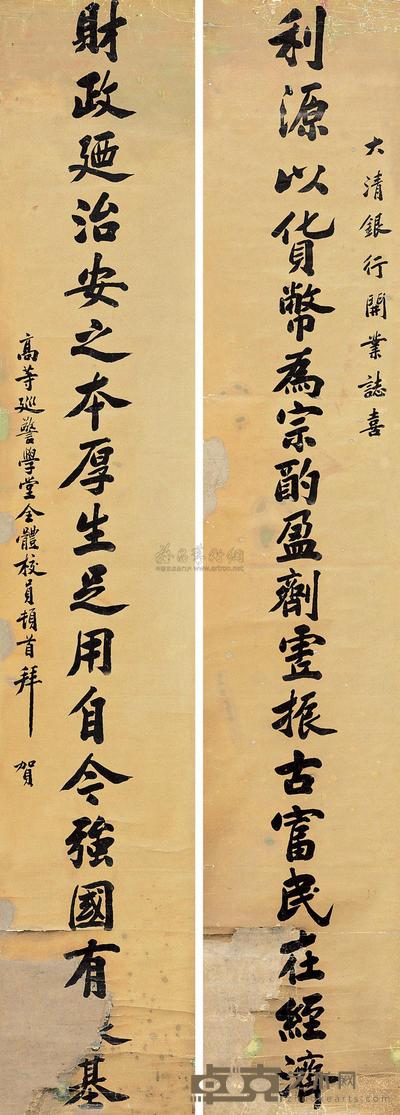 大清銀行開業誌喜
利源以貨幣為宗酌盈劑虛振古富民在經濟
財政廼治安之本厚生足用自今強國有基
高等廵警學堂全體校員頓首拜賀
www.artron.net
卓克艺术网